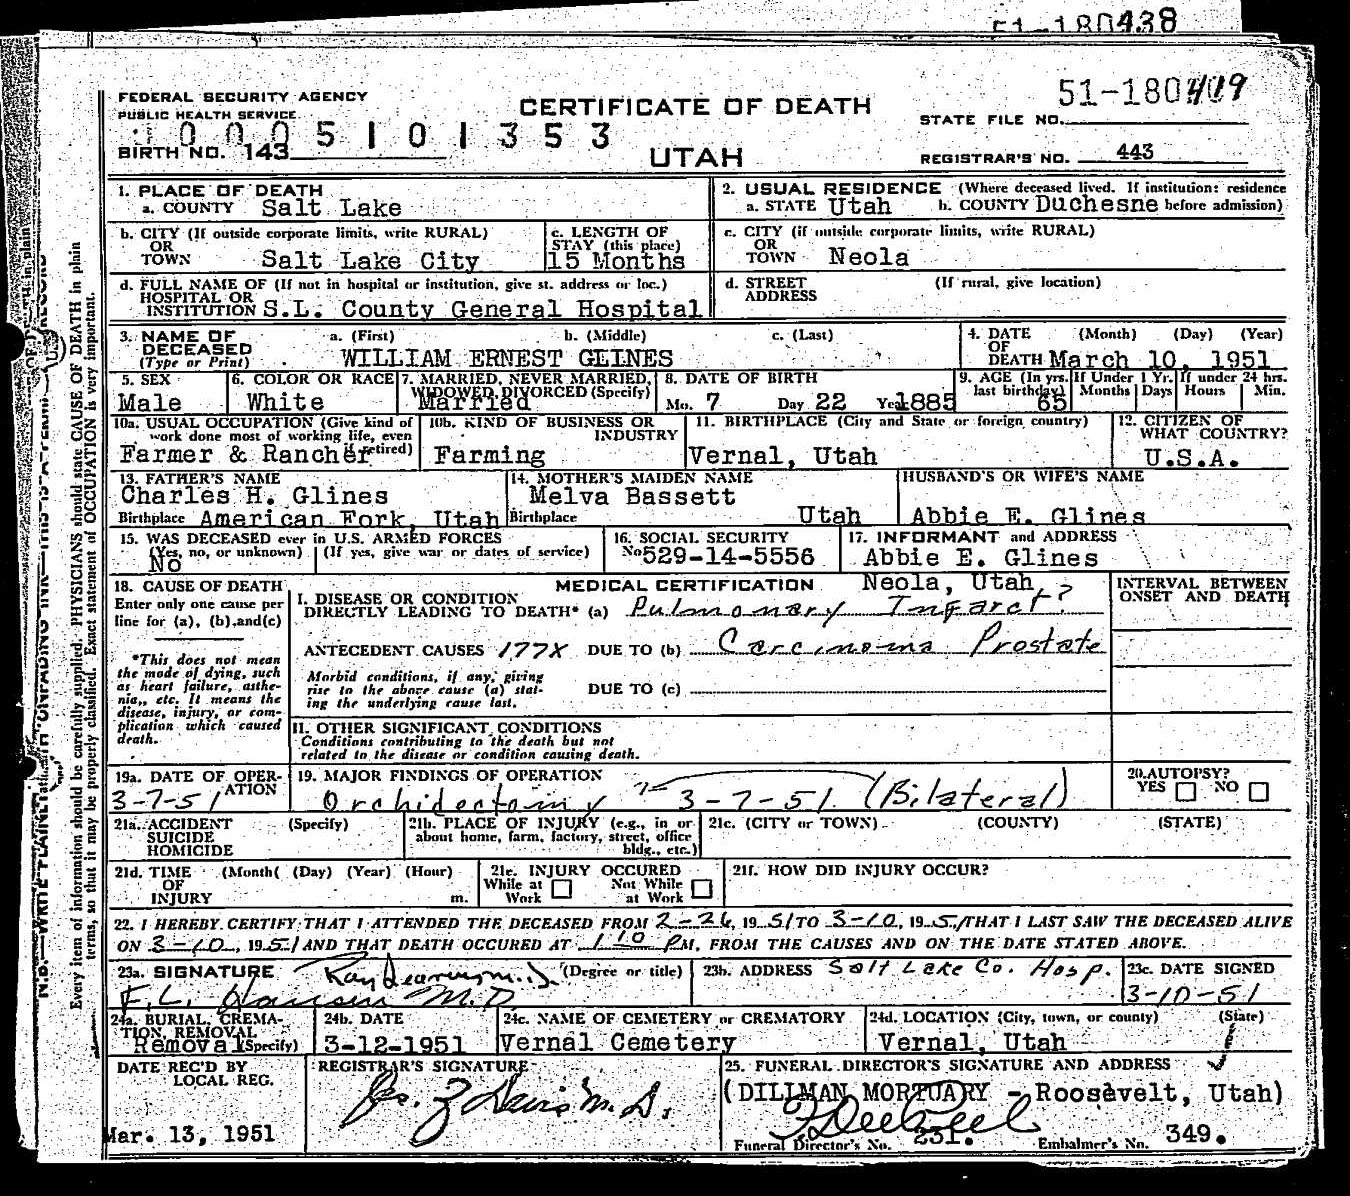 51-180438
51-180419
FEDERAL SECURITY AGENCY
PUBLIC HEALTH SERVICE
CERTIFICATE OF DEATH
STATE FILE NO.
0005101353
BIRTH NO. 143
UTAH
REGISTRAR'S NO. 443
1. PLACE OF DEATH
a. COUNTY Salt Lake
2. USUAL RESIDENCE (Where deceased lived. If institution: residence
a. STATE Utah b. COUNTY Duchesne before admission)
b. CITY (If outside corporate limits, write RURAL)
OR
TOWN Salt Lake City
c. LENGTH OF
STAY (this place)
15 Months
c. CITY (if outside corporate limits, write RURAL)
OR
TOWN Neola
d. FULL NAME OF (If not in hospital or institution, give st. address or loc.)
HOSPITAL OR
INSTITUTION S.L. County General Hospital
d. STREET (If rural, give location)
ADDRESS
3. NAME OF a. (First) b. (Middle) c. (Last)
DECEASED
(Type or Print) WILLIAM ERNEST GLINES
4. DATE (Month) (Day) (Year)
OF
DEATH March 10, 1951
5. SEX
Male
6. COLOR OR RACE
White
7. MARRIED, NEVER MARRIED,
WIDOWED, DIVORCED (Specify)
Married
8. DATE OF BIRTH
Mo. 7 Day 22 Year 1885
9. AGE (In yrs. If Under 1 Yr. If under 24 hrs.
last birthday) Months Days Hours Min.
65
10a. USUAL OCCUPATION (Give kind of
work done most of working life, even
if retired)
Farmer & Rancher
10b. KIND OF BUSINESS OR
INDUSTRY
Farming
11. BIRTHPLACE (City and State or foreign country)
Vernal, Utah
12. CITIZEN OF
WHAT COUNTRY?
U.S.A.
13. FATHER'S NAME
Charles H. Glines
Birthplace American Fork, Utah
14. MOTHER'S MAIDEN NAME
Melva Bassett
Birthplace Utah
HUSBAND'S OR WIFE'S NAME
Abbie E. Glines
15. WAS DECEASED ever in U.S. ARMED FORCES
(Yes, no, or unknown) (If yes, give war or dates of service)
No
16. SOCIAL SECURITY
No 529-14-5556
17. INFORMANT and ADDRESS
Abbie E. Glines
Neola, Utah
18. CAUSE OF DEATH
Enter only one cause per
line for (a), (b), and (c)
*This does not mean
the mode of dying, such
as heart failure, asthe-
nia, etc. It means the
disease, injury, or com-
plication which caused
death.
MEDICAL CERTIFICATION
I. DISEASE OR CONDITION
DIRECTLY LEADING TO DEATH* (a) Pulmonary Infarct?
ANTECEDENT CAUSES 177X DUE TO (b) Carcinoma Prostate
Morbid conditions, if any, giving
rise to the above cause (a) stat-
ing the underlying cause last.
DUE TO (c)
II. OTHER SIGNIFICANT CONDITIONS
Conditions contributing to the death but not
related to the disease or condition causing death.
INTERVAL BETWEEN
ONSET AND DEATH
19a. DATE OF OPER-
ATION
3-7-51
19. MAJOR FINDINGS OF OPERATION
Orchidectomy 3-7-51. (Bilateral)
20. AUTOPSY?
YES NO
21a. ACCIDENT (Specify)
SUICIDE
HOMICIDE
21b. PLACE OF INJURY (e.g., in or
about home, farm, factory, street, office
bldg., etc.)
21c. (CITY or TOWN) (COUNTY) (STATE)
21d. TIME (Month( (Day) (Year) (Hour)
OF
INJURY m.
21e. INJURY OCCURED
While at Work Not While at Work
21f. HOW DID INJURY OCCUR?
22. I HEREBY CERTIFY THAT I ATTENDED THE DECEASED FROM 2-26, 1951 TO 3-10, 1951 THAT I LAST SAW THE DECEASED ALIVE
ON 3-10, 1951 AND THAT DEATH OCCURED AT 1 10 PM, FROM THE CAUSES AND ON THE DATE STATED ABOVE.
23a. SIGNATURE (Degree or title)
F.L. Hansen M.D.
23b. ADDRESS Salt Lake Co. Hosp.
23c. DATE SIGNED
3-10-51
24a. BURIAL, CREMA-
TION, REMOVAL
Removal (Specify)
24b. DATE
3-12-1951
24c. NAME OF CEMETERY or CREMATORY
Vernal Cemetery
24d. LOCATION (City, town, or county) (State)
Vernal, Utah
DATE REC'D BY
LOCAL REG.
Mar. 13, 1951
REGISTRAR'S SIGNATURE
25. FUNERAL DIRECTOR'S SIGNATURE AND ADDRESS
(DILLMAN MORTUARY - Roosevelt, Utah)
Funeral Director's No. 231. Embalmer's No. 349.
Every item of information should be carefully supplied. PHYSICIANS should state CAUSE OF DEATH in plain
terms, so that it may be properly classified. Exact statement of OCCUPATION is very important.